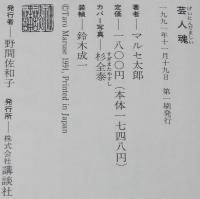 げいにんだましい
芸人魂
一九九一年十一月十九日　第一刷発行
著者──マルセ太郎
定価──一八〇〇円（本体一七四八円）
カバー写真──杉全泰
すぎまたやすし
装幀──鈴木成一
©Taro Maruse 1991, Printed in Japan
発行者──野間佐和子
発行所──株式会社 講談社